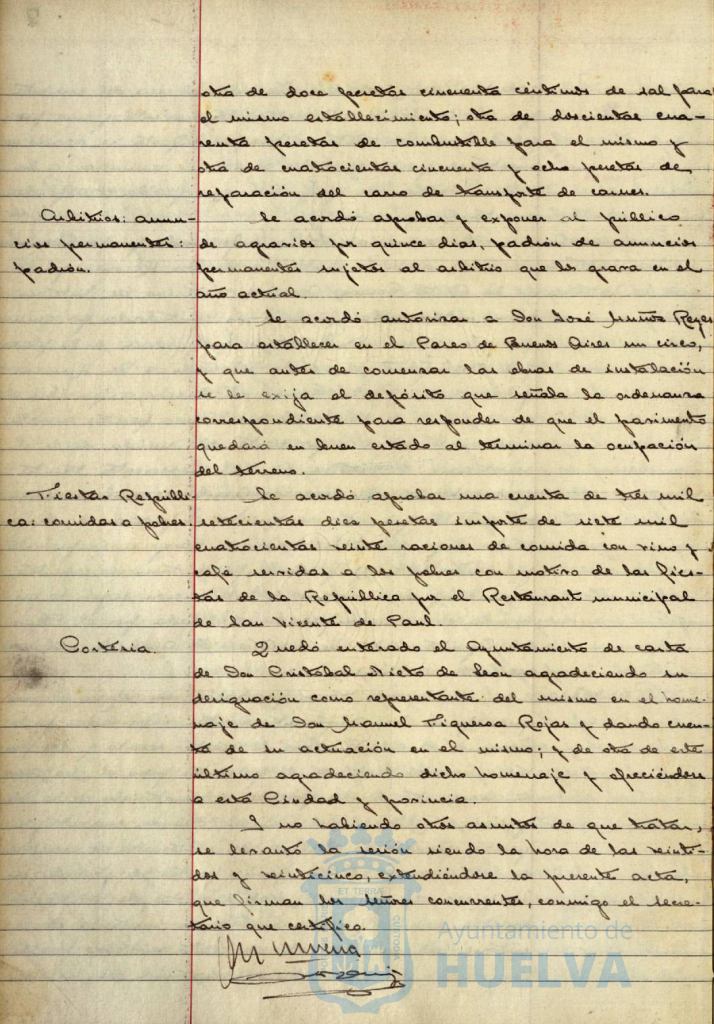 otra de doce pesetas cincuenta céntimos de sal para
el mismo establecimiento; otra de doscientas cua-
renta pesetas de combustible para el mismo y
otra de cuatrocientas cincuenta y ocho pesetas de
reparación del carro de transporte de carnes.
Arbitrios: anun-
cios permanentes:
padrón.
Se acordó aprobar y exponer al público
de agravios por quince días, padrón de anuncios
permanentes sujetos al arbitrio que los grava en el
año actual.
Se acordó autorizar a Don José Muñoz Reyes
para establecer en el Paseo de Buenos Aires un circo,
y que antes de comenzar las obras de instalación
se le exija el depósito que señala la ordenanza
correspondiente para responder de que el pavimento
quedará en buen estado al terminar la ocupación
del terreno.
Fiestas Repúbli-
ca: comidas a pobres.
Se acordó aprobar una cuenta de tres mil
setecientas diez pesetas importe de siete mil
cuatrocientas veinte raciones de comida con vino y
café servidas a los pobres con motivo de las fies-
tas de la República por el Restaurant municipal
de San Vicente de Paul.
Cortesía.
Quedó enterado el Ayuntamiento de carta
de Don Cristóbal Nieto de León agradeciendo su
designación como representante del mismo en el home-
naje de Don Manuel Figueroa Rojas y dando cuen-
ta de su actuación en el mismo; y de otra de este
último agradeciendo dicho homenaje y ofreciéndose
a esta Ciudad y provincia.
Y no habiendo otros asuntos de que tratar,
se levantó la sesión siendo la hora de las veinti-
dos y veinticinco, extendiéndose la presente acta,
que firman los señores concurrentes, conmigo el Secre-
tario que certifico.
ET TERRAE
Ayuntamiento de
HUELVA